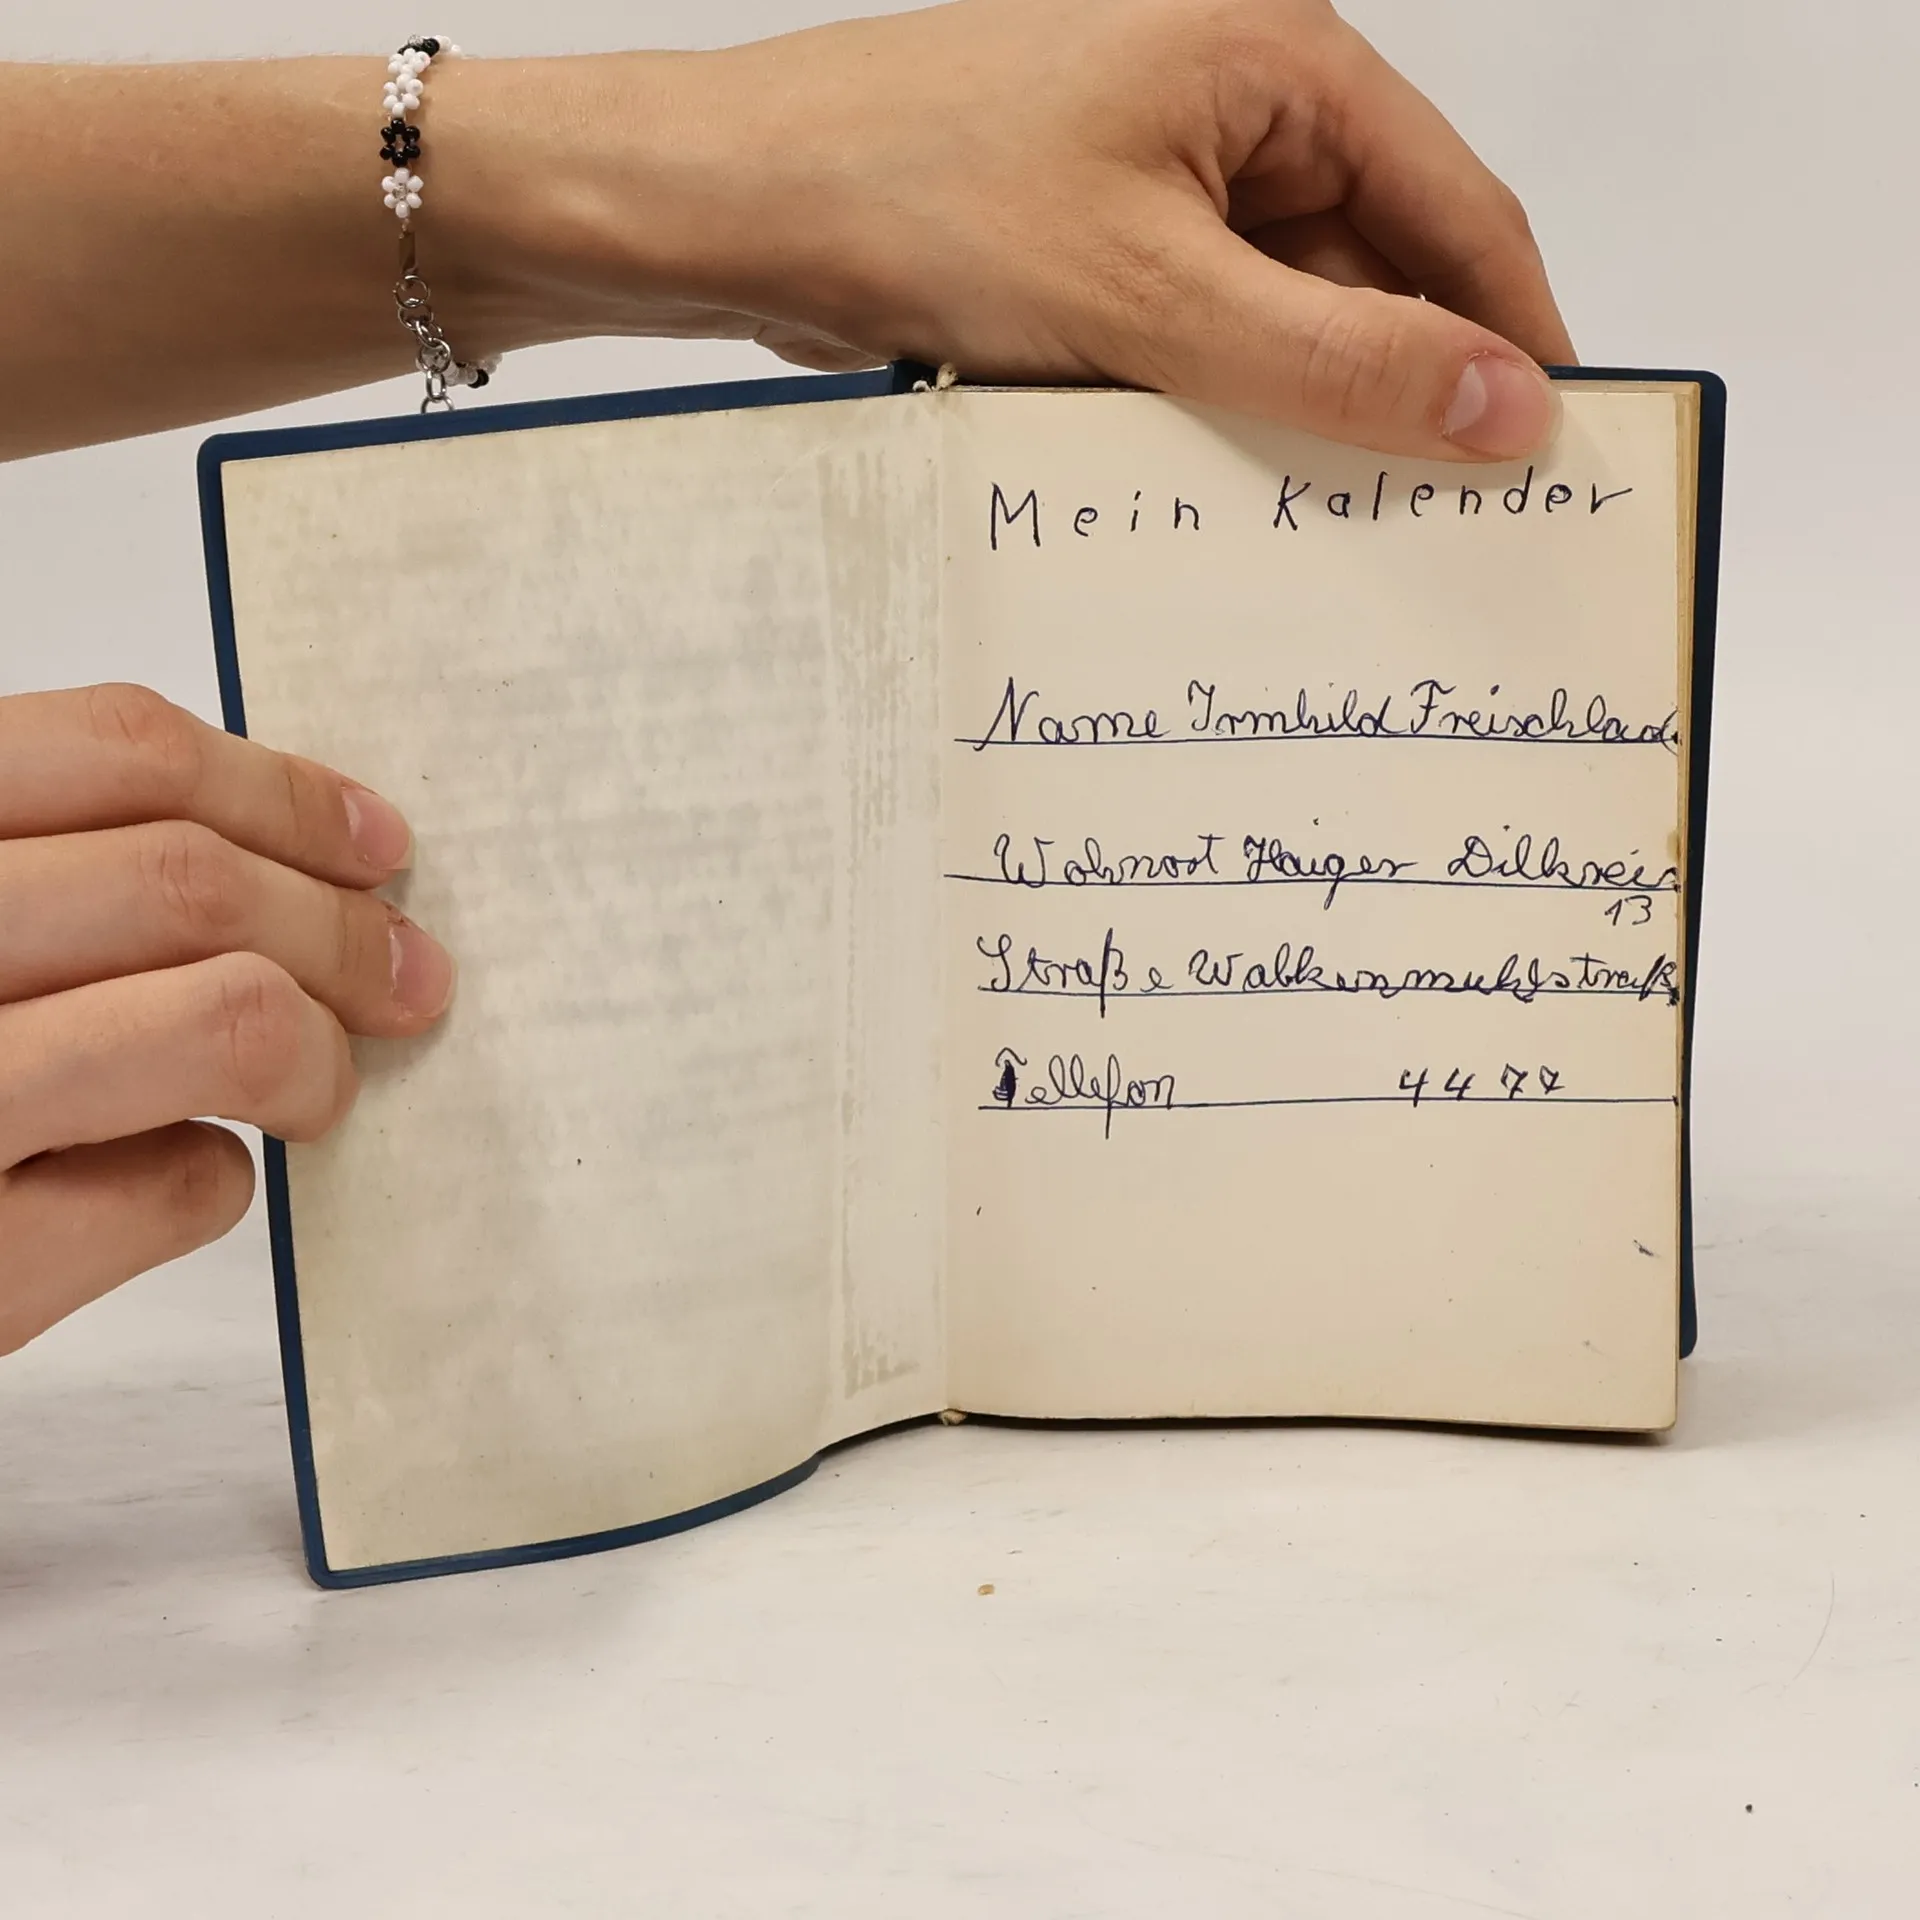 Mein Kalender
Name Irmhild Freischlad
Wohnort Haiger Dillkreis
13
Straße Walkenmuhlstraß
Tellefon 4477